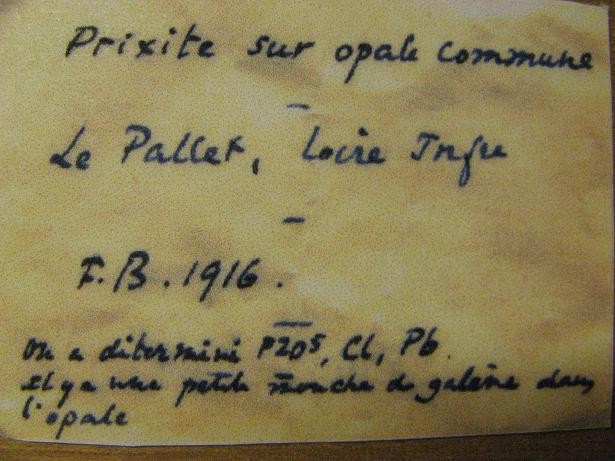 Prixite sur opale commune
–
Le Pallet, Loire Infre
–
F.B. 1916.
–
On a determiné P2O5, Cl, Pb.
Il y a une petite mouche de galène dans
l'opale